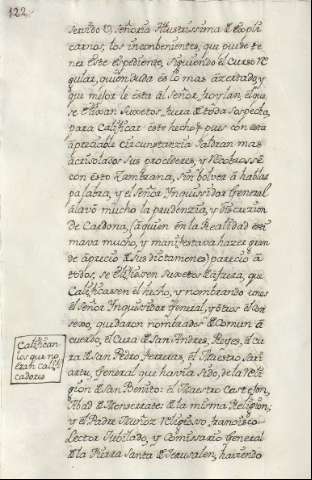 122
servido V. Señoria Illustrissima de explicarnos, los
carnos, los inconbenientes, que puede te
ner este expediente, siguiendo el Curso Re
gular, quien duda es lo mas azertado, y
que mejor le esta al Señor Froylan, el que
se elixan Suxetos, fuera de toda sospecha,
para Calificar este hecho, pues con esta
apreciable circunstanzia saldran mas
acrisolados sus procederes, y
con esto Zambrana, sin bolver à hablar
palabra, y el Señor Ynquissidor General
alavò mucho la prudenzia, y discrezion
de Cardona, (à quien en la Realidad esti
mava mucho, y manifestava hazer gran
de aprecio de sus dictamenes) pareciò à
todos, se elixiesen Suxetos de afuera, que
Calificassen el hecho, y nombrando unos
el Señor Ynquissidor General, y otros el Con
sexo, quedaron nombrados de Comun à
cuerdo, el Cura de San Andres, Reyes, el Cu
ra de San Pedro, el Maestro Sar
General que havia sido, de la Reli
gion de San Benito: el Maestro
Abad de Monserrate: de la misma Religion;
y el Padre Muñoz Religioso Francisco
Lector Jubilado, y Comissario General
de la Tierra Santa de Jerusalen, haviendo
Calificar
los que no
eran calific
cadores